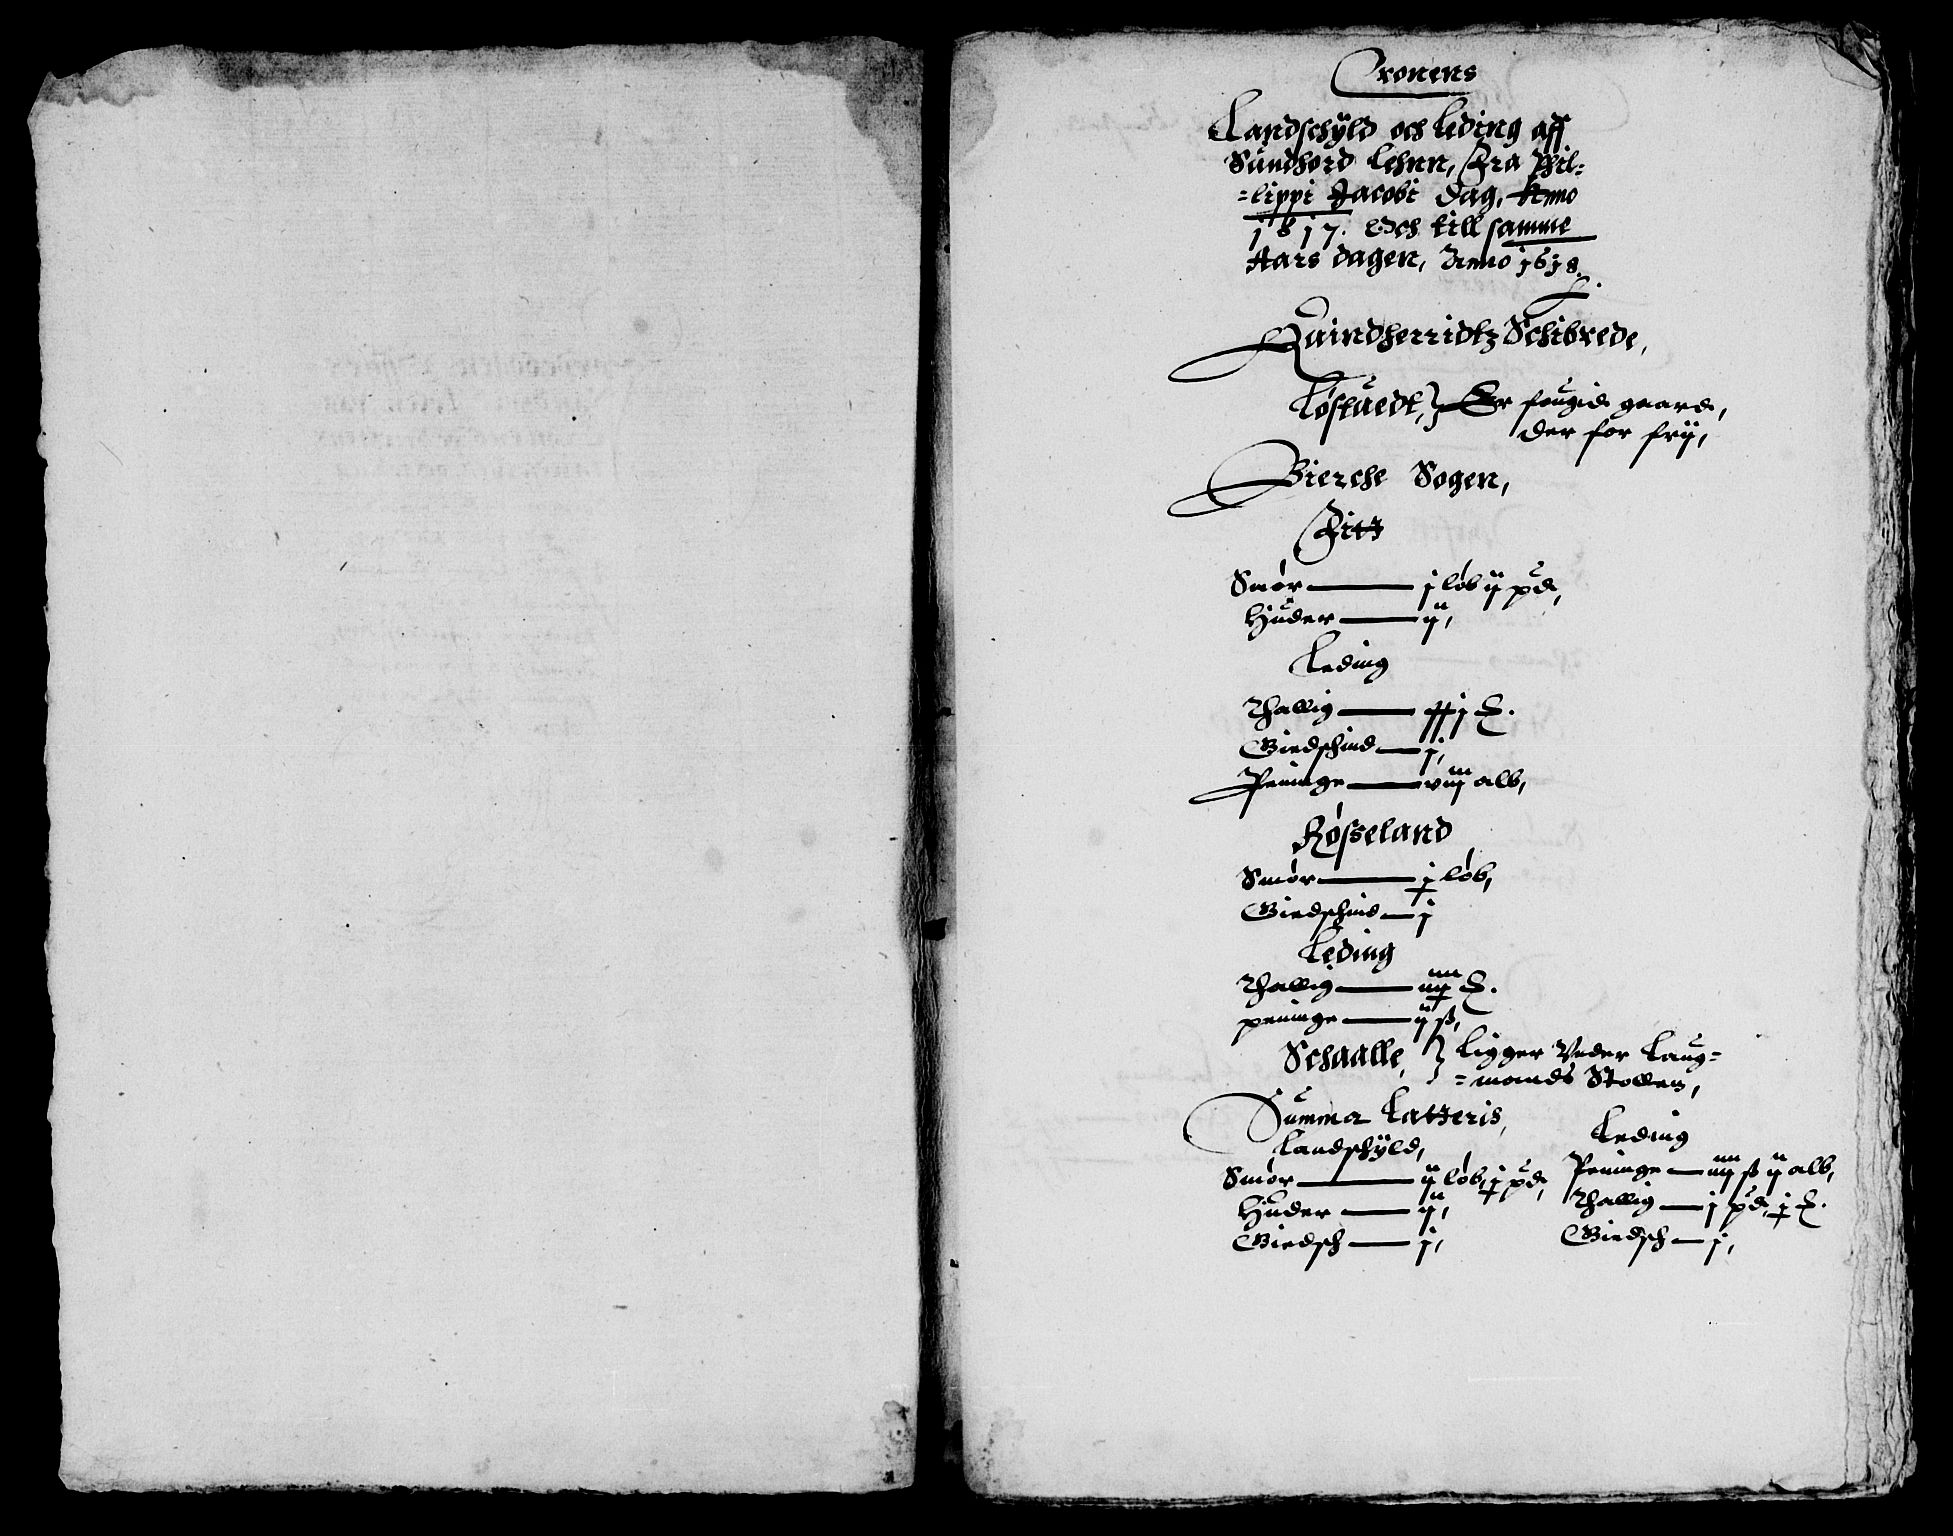 Cronens
Landschyld och Leding aff
Sundhord Lehnn, Fra Phil=
=lippi Jacobi dag, Anno
1617. Och till samme
Aars dagen, Anno 1618.
Quindherridtz Schibrede,
Løstuedt, } Er fougids gaard,
der for frij,
Bierche Sogen,
Fitz
Smør — j løb ij pd,
Huder — ij,
Leding
Thallig — j
Giedschind — j,
Peninge — viij alb,
Røsseland
Smør — j løb,
Giedschind — j
Leding
Thallig — iiij
peninge — ij ß,
Schaalle, } ligger Vnder Laug=
=mands Stollenn,
Summa Latteris,
Landschyld,
Smør — ij løb, j pd,
Huder — ij,
Giedsch — j,
Leding
Peninge — iiij ß ij alb,
Thallig — j pd, j
Giedsch — j,